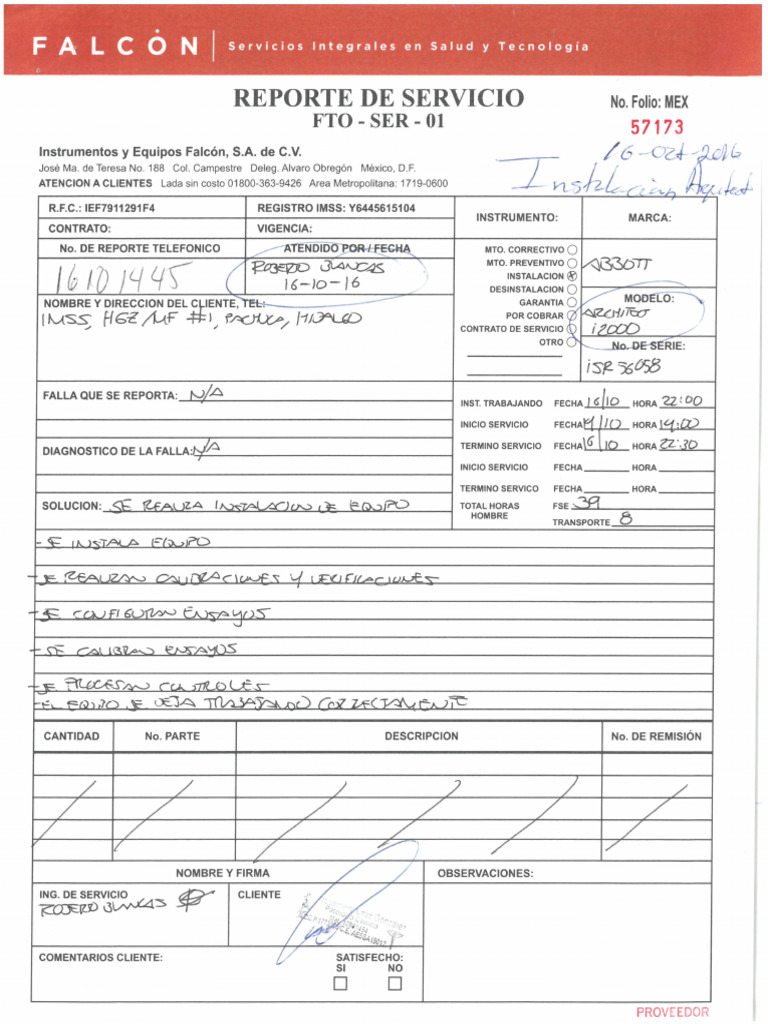 FALCÓN | Servicios Integrales en Salud y Tecnología
REPORTE DE SERVICIO
FTO - SER - 01
No. Folio: MEX
57173
16-oct-2016
Instalacion
Instrumentos y Equipos Falcón, S.A. de C.V.
José Ma. de Teresa No. 188 Col. Campestre Deleg. Alvaro Obregón México, D.F.
ATENCION A CLIENTES Lada sin costo 01800-363-9426 Area Metropolitana: 1719-0600
R.F.C.: IEF7911291F4
REGISTRO IMSS: Y6445615104
CONTRATO:
VIGENCIA:
No. DE REPORTE TELEFONICO
ATENDIDO POR / FECHA
16101445
ROGERIO BLANCAS
16-10-16
NOMBRE Y DIRECCION DEL CLIENTE, TEL:
IMSS, HGZ/MF #1, PACHUCA, HIDALGO
INSTRUMENTO:
MARCA:
MTO. CORRECTIVO
MTO. PREVENTIVO
INSTALACION
DESINSTALACION
GARANTIA
POR COBRAR
CONTRATO DE SERVICIO
OTRO
ABBOTT
MODELO:
ARCHITECT
i2000
No. DE SERIE:
iSR56058
FALLA QUE SE REPORTA: N/A
DIAGNOSTICO DE LA FALLA: N/A
SOLUCION: SE REALIZA INSTALACION DE EQUIPO
INST. TRABAJANDO FECHA 16/10 HORA 22:00
INICIO SERVICIO FECHA /10 HORA 14:00
TERMINO SERVICIO FECHA 16/10 HORA 22:30
INICIO SERVICIO FECHA HORA
TERMINO SERVICO FECHA HORA
TOTAL HORAS HOMBRE
FSE 39
TRANSPORTE 8
- SE INSTALA EQUIPO
- SE REALIZAN CALIBRACIONES Y VERIFICACIONES
- SE CONFIGURAN ENSAYOS
- SE CALIBRAN ENSAYOS
- SE PROCESAN CONTROLES
- EL EQUIPO SE DEJA TRABAJANDO CORRECTAMENTE
CANTIDAD
No. PARTE
DESCRIPCION
No. DE REMISIÓN
NOMBRE Y FIRMA
OBSERVACIONES:
ING. DE SERVICIO
ROGERIO BLANCAS
CLIENTE
COMENTARIOS CLIENTE:
SATISFECHO:
SI NO
PROVEEDOR